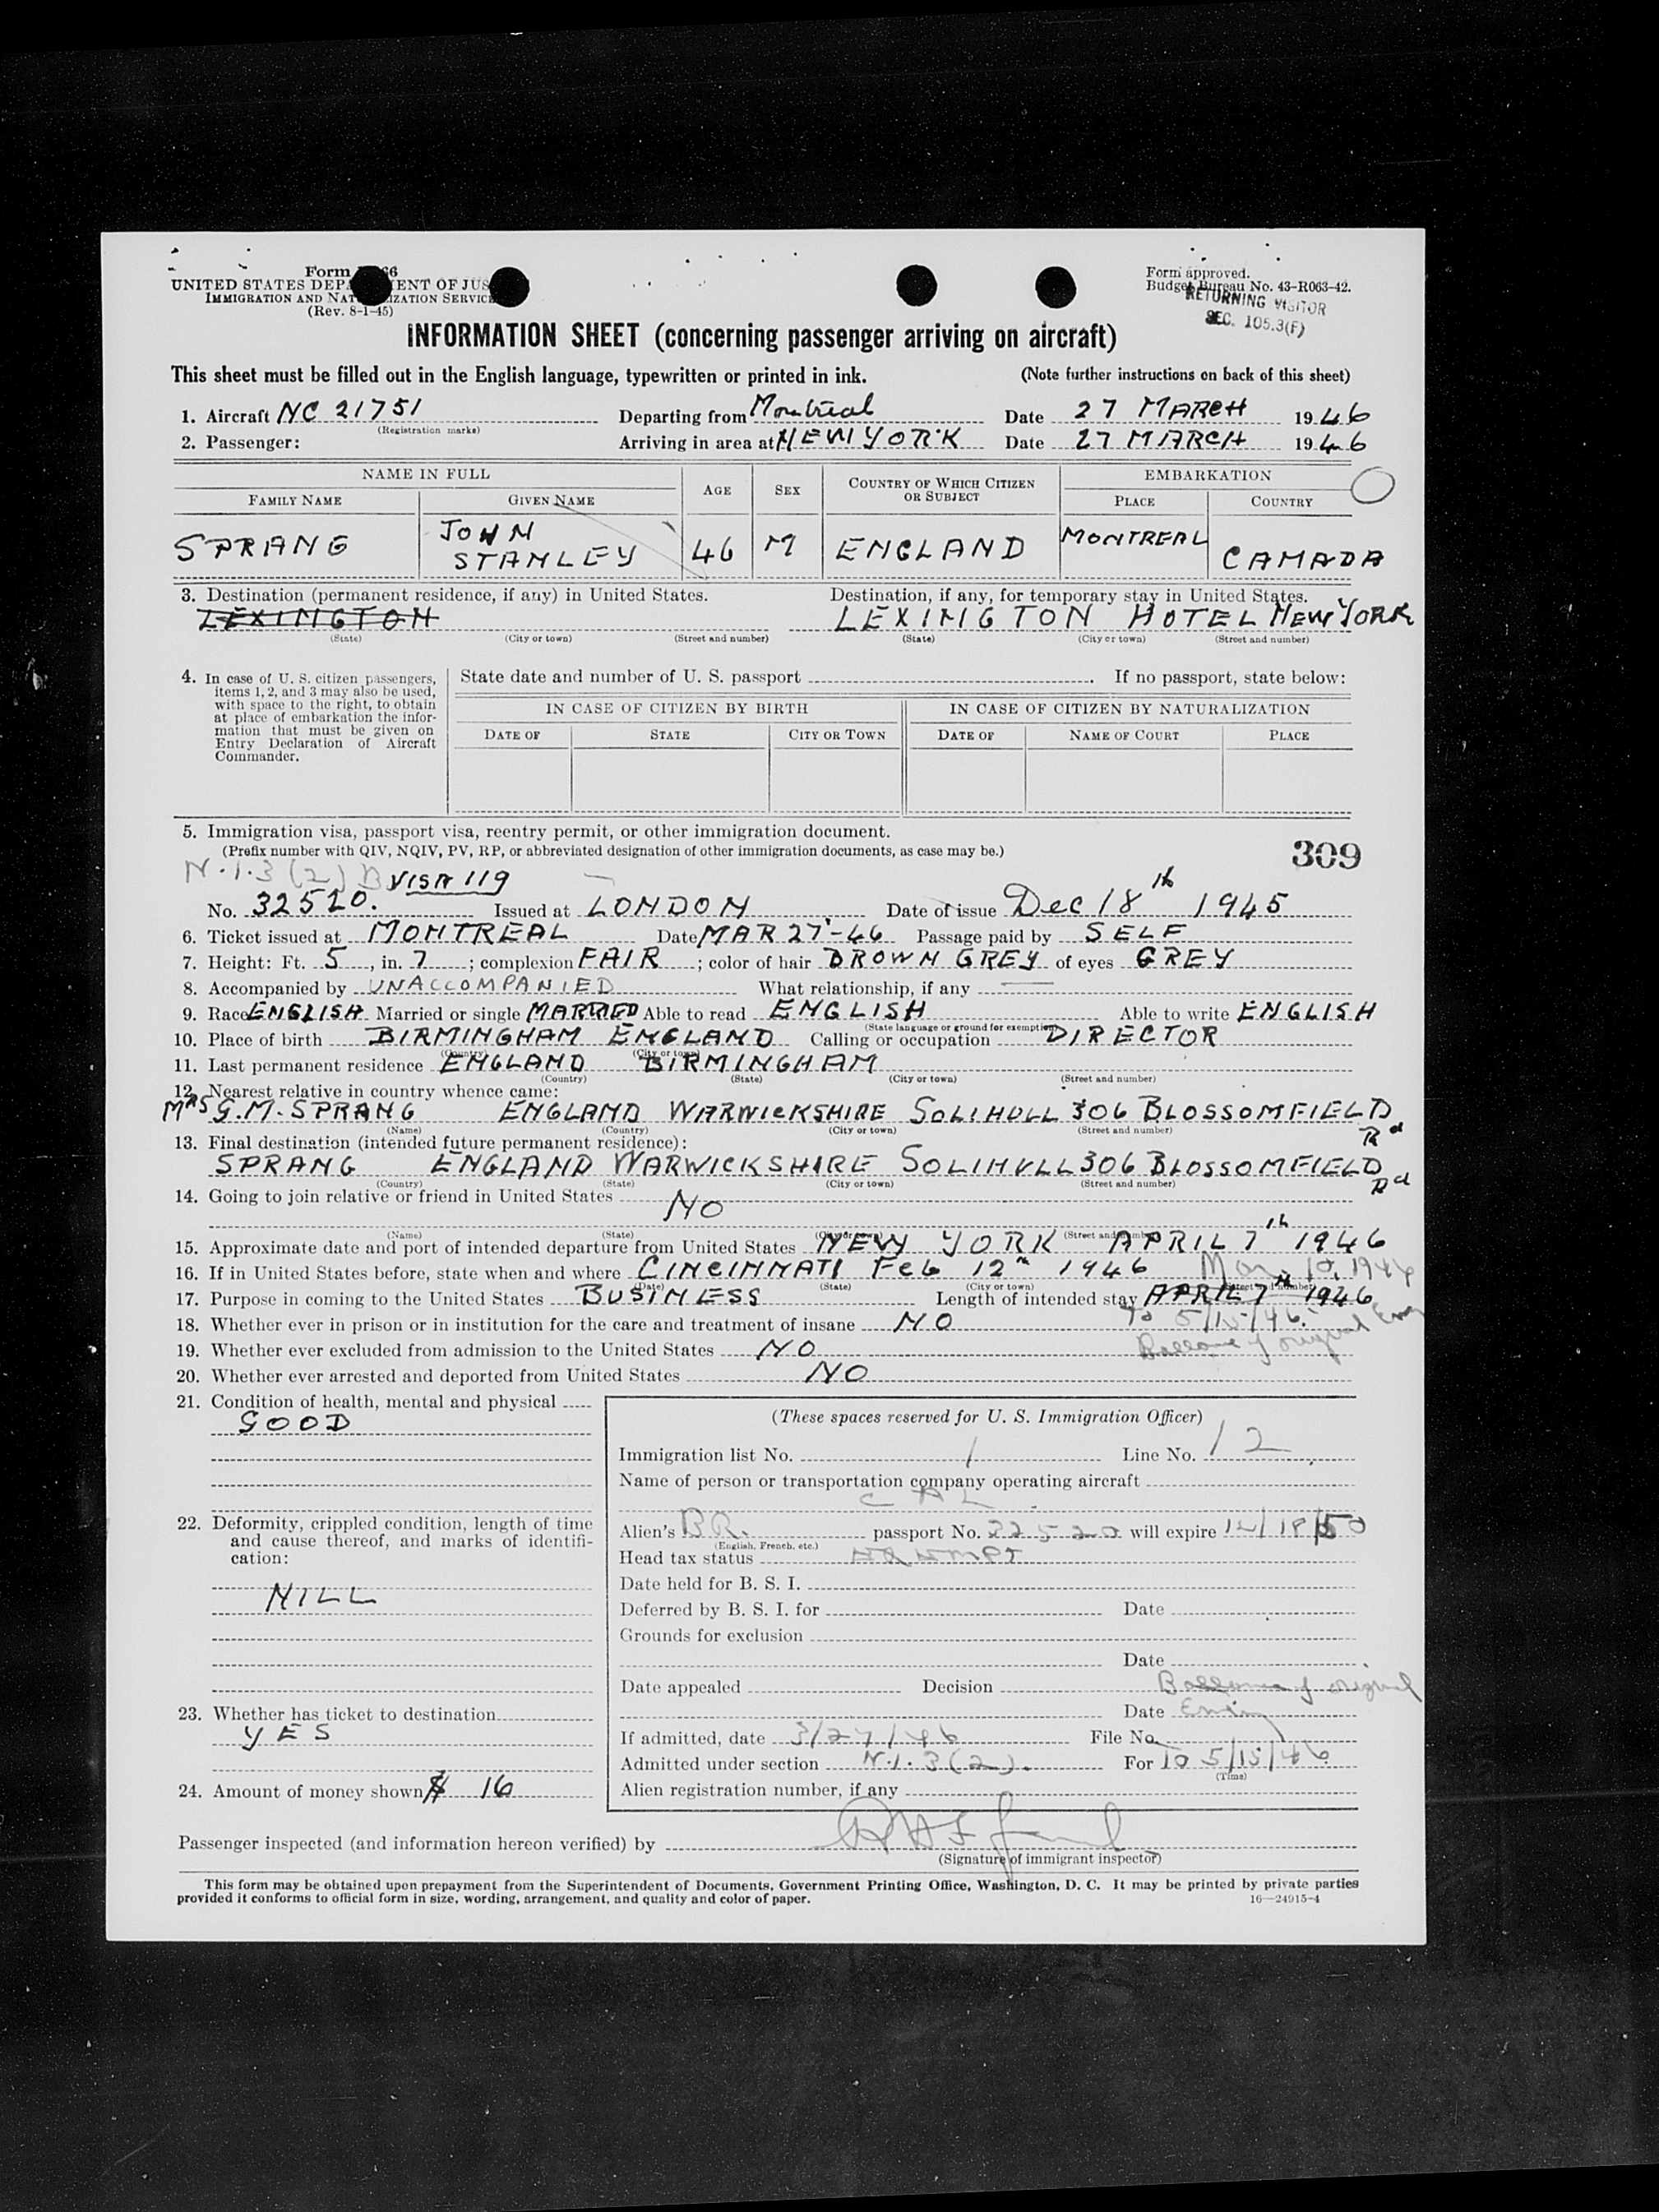 Form
UNITED STATES DEPA ENT OF JUS
IMMIGRATION AND NAT IZATION SERVICE
(Rev. 8-1-45)
Form approved.
Budget Bureau No. 43-R063-42.
RETURNING VISITOR
SEC. 105.3(F)
INFORMATION SHEET (concerning passenger arriving on aircraft)
This sheet must be filled out in the English language, typewritten or printed in ink. (Note further instructions on back of this sheet)
1. Aircraft NC 21751 Departing from Montreal Date 27 MARCH 1946
(Registration marks)
2. Passenger: Arriving in area at NEW YORK Date 27 MARCH 1946
NAME IN FULL AGE SEX COUNTRY OF WHICH CITIZEN OR SUBJECT EMBARKATION
FAMILY NAME GIVEN NAME PLACE COUNTRY
SPRANG JOHN STANLEY 46 M ENGLAND MONTREAL CANADA
3. Destination (permanent residence, if any) in United States. Destination, if any, for temporary stay in United States.
LEXINGTON LEXINGTON HOTEL NEW YORK
(State) (City or town) (Street and number) (State) (City or town) (Street and number)
4. In case of U. S. citizen passengers, items 1, 2, and 3 may also be used, with space to the right, to obtain at place of embarkation the information that must be given on Entry Declaration of Aircraft Commander.
State date and number of U. S. passport If no passport, state below:
IN CASE OF CITIZEN BY BIRTH IN CASE OF CITIZEN BY NATURALIZATION
DATE OF STATE CITY OR TOWN DATE OF NAME OF COURT PLACE
5. Immigration visa, passport visa, reentry permit, or other immigration document.
(Prefix number with QIV, NQIV, PV, RP, or abbreviated designation of other immigration documents, as case may be.)
309
N.1.3 (2) B VISA 119
No. 32520. Issued at LONDON Date of issue Dec 18th 1945
6. Ticket issued at MONTREAL Date MAR 27-46 Passage paid by SELF
7. Height: Ft. 5, in. 7; complexion FAIR; color of hair BROWN GREY of eyes GREY
8. Accompanied by UNACCOMPANIED What relationship, if any —
9. Race ENGLISH Married or single MARRIED Able to read ENGLISH Able to write ENGLISH
(State language or ground for exemption)
10. Place of birth BIRMINGHAM ENGLAND Calling or occupation DIRECTOR
(Country) (City or town)
11. Last permanent residence ENGLAND BIRMINGHAM
(Country) (State) (City or town) (Street and number)
12. Nearest relative in country whence came:
MRS G.M. SPRANG ENGLAND WARWICKSHIRE SOLIHULL 306 BLOSSOMFIELD Rd
(Name) (Country) (City or town) (Street and number)
13. Final destination (intended future permanent residence):
SPRANG ENGLAND WARWICKSHIRE SOLIHULL 306 BLOSSOMFIELD Rd
(Country) (State) (City or town) (Street and number)
14. Going to join relative or friend in United States NO
(Name) (State) (City or town) (Street and number)
15. Approximate date and port of intended departure from United States NEW YORK APRIL 7th 1946
16. If in United States before, state when and where CINCINNATI Feb 12th 1946 Mar. 10, 1946
(Date) (State) (City or town) (Street and number)
17. Purpose in coming to the United States BUSINESS Length of intended stay APRIL 7th 1946
18. Whether ever in prison or in institution for the care and treatment of insane NO To 5/15/46.
19. Whether ever excluded from admission to the United States NO Ballance of original Entry
20. Whether ever arrested and deported from United States NO
21. Condition of health, mental and physical
GOOD
22. Deformity, crippled condition, length of time and cause thereof, and marks of identification:
NILL
23. Whether has ticket to destination
YES
24. Amount of money shown $ 16
(These spaces reserved for U. S. Immigration Officer)
Immigration list No. 1 Line No. 12
Name of person or transportation company operating aircraft
CAL
Alien's BR. passport No. 32520 will expire 12/18/50
(English, French, etc.)
Head tax status EXEMPT
Date held for B. S. I.
Deferred by B. S. I. for Date
Grounds for exclusion
Date
Date appealed Decision Ballance of original
Date Entry
If admitted, date 3/27/46 File No.
Admitted under section N.1.3(2). For TO 5/15/46
(Time)
Alien registration number, if any
Passenger inspected (and information hereon verified) by
(Signature of immigrant inspector)
This form may be obtained upon prepayment from the Superintendent of Documents, Government Printing Office, Washington, D. C. It may be printed by private parties
provided it conforms to official form in size, wording, arrangement, and quality and color of paper. 16—24915-4